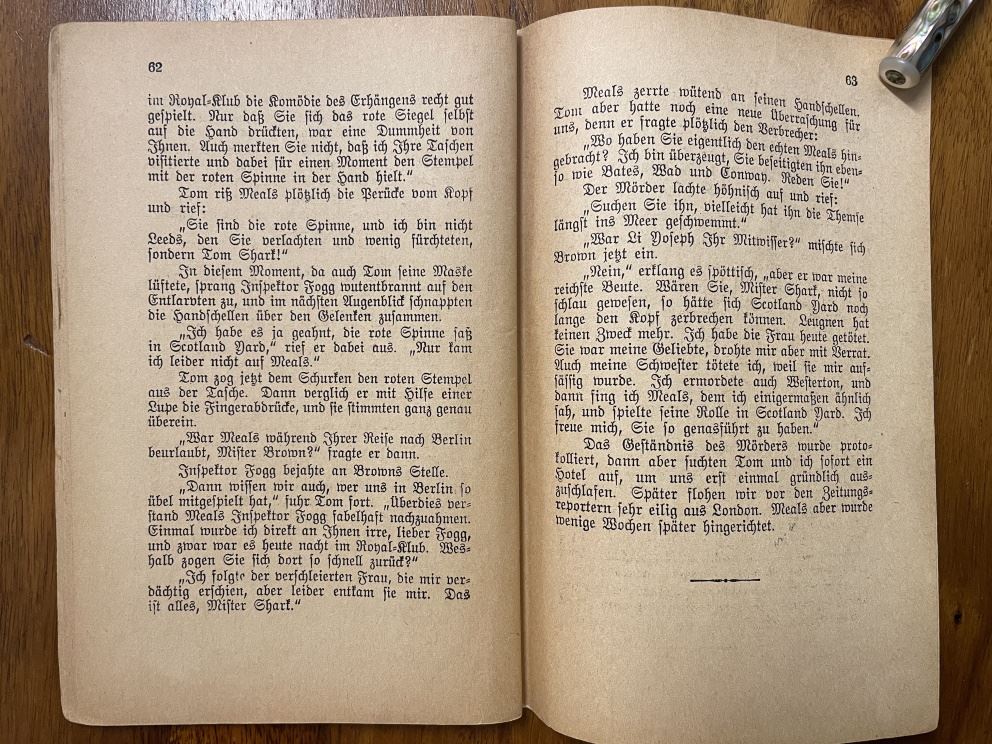 62
im Royal-Klub die Komödie des Erhängens recht gut
gespielt. Nur daß Sie sich das rote Siegel selbst
auf die Hand drückten, war eine Dummheit von
Ihnen. Auch merkten Sie nicht, daß ich Ihre Taschen
visitierte und dabei für einen Moment den Stempel
mit der roten Spinne in der Hand hielt.“
Tom riß Meals plötzlich die Perücke vom Kopf
und rief:
„Sie sind die rote Spinne, und ich bin nicht
Leeds, den Sie verlachten und wenig fürchteten,
sondern Tom Shark!“
In diesem Moment, da auch Tom seine Maske
lüftete, sprang Inspektor Fogg wutentbrannt auf den
Entlarvten zu, und im nächsten Augenblick schnappten
die Handschellen über den Gelenken zusammen.
„Ich habe es ja geahnt, die rote Spinne saß
in Scotland Yard,“ rief er dabei aus. „Nur kam
ich leider nicht auf Meals.“
Tom zog jetzt dem Schurken den roten Stempel
aus der Tasche. Dann verglich er mit Hilfe einer
Lupe die Fingerabdrücke, und sie stimmten ganz genau
überein.
„War Meals während Ihrer Reise nach Berlin
beurlaubt, Mister Brown?“ fragte er dann.
Inspektor Fogg bejahte an Browns Stelle.
„Dann wissen wir auch, wer uns in Berlin so
übel mitgespielt hat,“ fuhr Tom fort. „Überdies ver-
stand Meals Inspektor Fogg fabelhaft nachzuahmen.
Einmal wurde ich direkt an Ihnen irre, lieber Fogg,
und zwar war es heute nacht im Royal-Klub. Wes-
halb zogen Sie sich dort so schnell zurück?“
„Ich folgte der verschleierten Frau, die mir ver-
dächtig erschien, aber leider entkam sie mir. Das
ist alles, Mister Shark.“
63
Meals zerrte wütend an seinen Handschellen.
Tom aber hatte noch eine neue Überraschung für
uns, denn er fragte plötzlich den Verbrecher:
„Wo haben Sie eigentlich den echten Meals hin-
gebracht? Ich bin überzeugt, Sie beseitigten ihn eben-
so wie Bates, Wad und Conway. Reden Sie!“
Der Mörder lachte höhnisch auf und rief:
„Suchen Sie ihn, vielleicht hat ihn die Themse
längst ins Meer geschwemmt.“
„War Li Yoseph Ihr Mitwisser?“ mischte sich
Brown jetzt ein.
„Nein,“ erklang es spöttisch, „aber er war meine
reichste Beute. Wären Sie, Mister Shark, nicht so
schlau gewesen, so hätte sich Scotland Yard noch
lange den Kopf zerbrechen können. Leugnen hat
keinen Zweck mehr. Ich habe die Frau heute getötet.
Sie war meine Geliebte, drohte mir aber mit Verrat.
Auch meine Schwester tötete ich, weil sie mir auf-
sässig wurde. Ich ermordete auch Westerton, und
dann fing ich Meals, dem ich einigermaßen ähnlich
sah, und spielte seine Rolle in Scotland Yard. Ich
freue mich, Sie so genasführt zu haben.“
Das Geständnis des Mörders wurde proto-
kolliert, dann aber suchten Tom und ich sofort ein
Hotel auf, um uns erst einmal gründlich aus-
zuschlafen. Später flohen wir vor den Zeitungs-
reportern sehr eilig aus London. Meals aber wurde
wenige Wochen später hingerichtet.